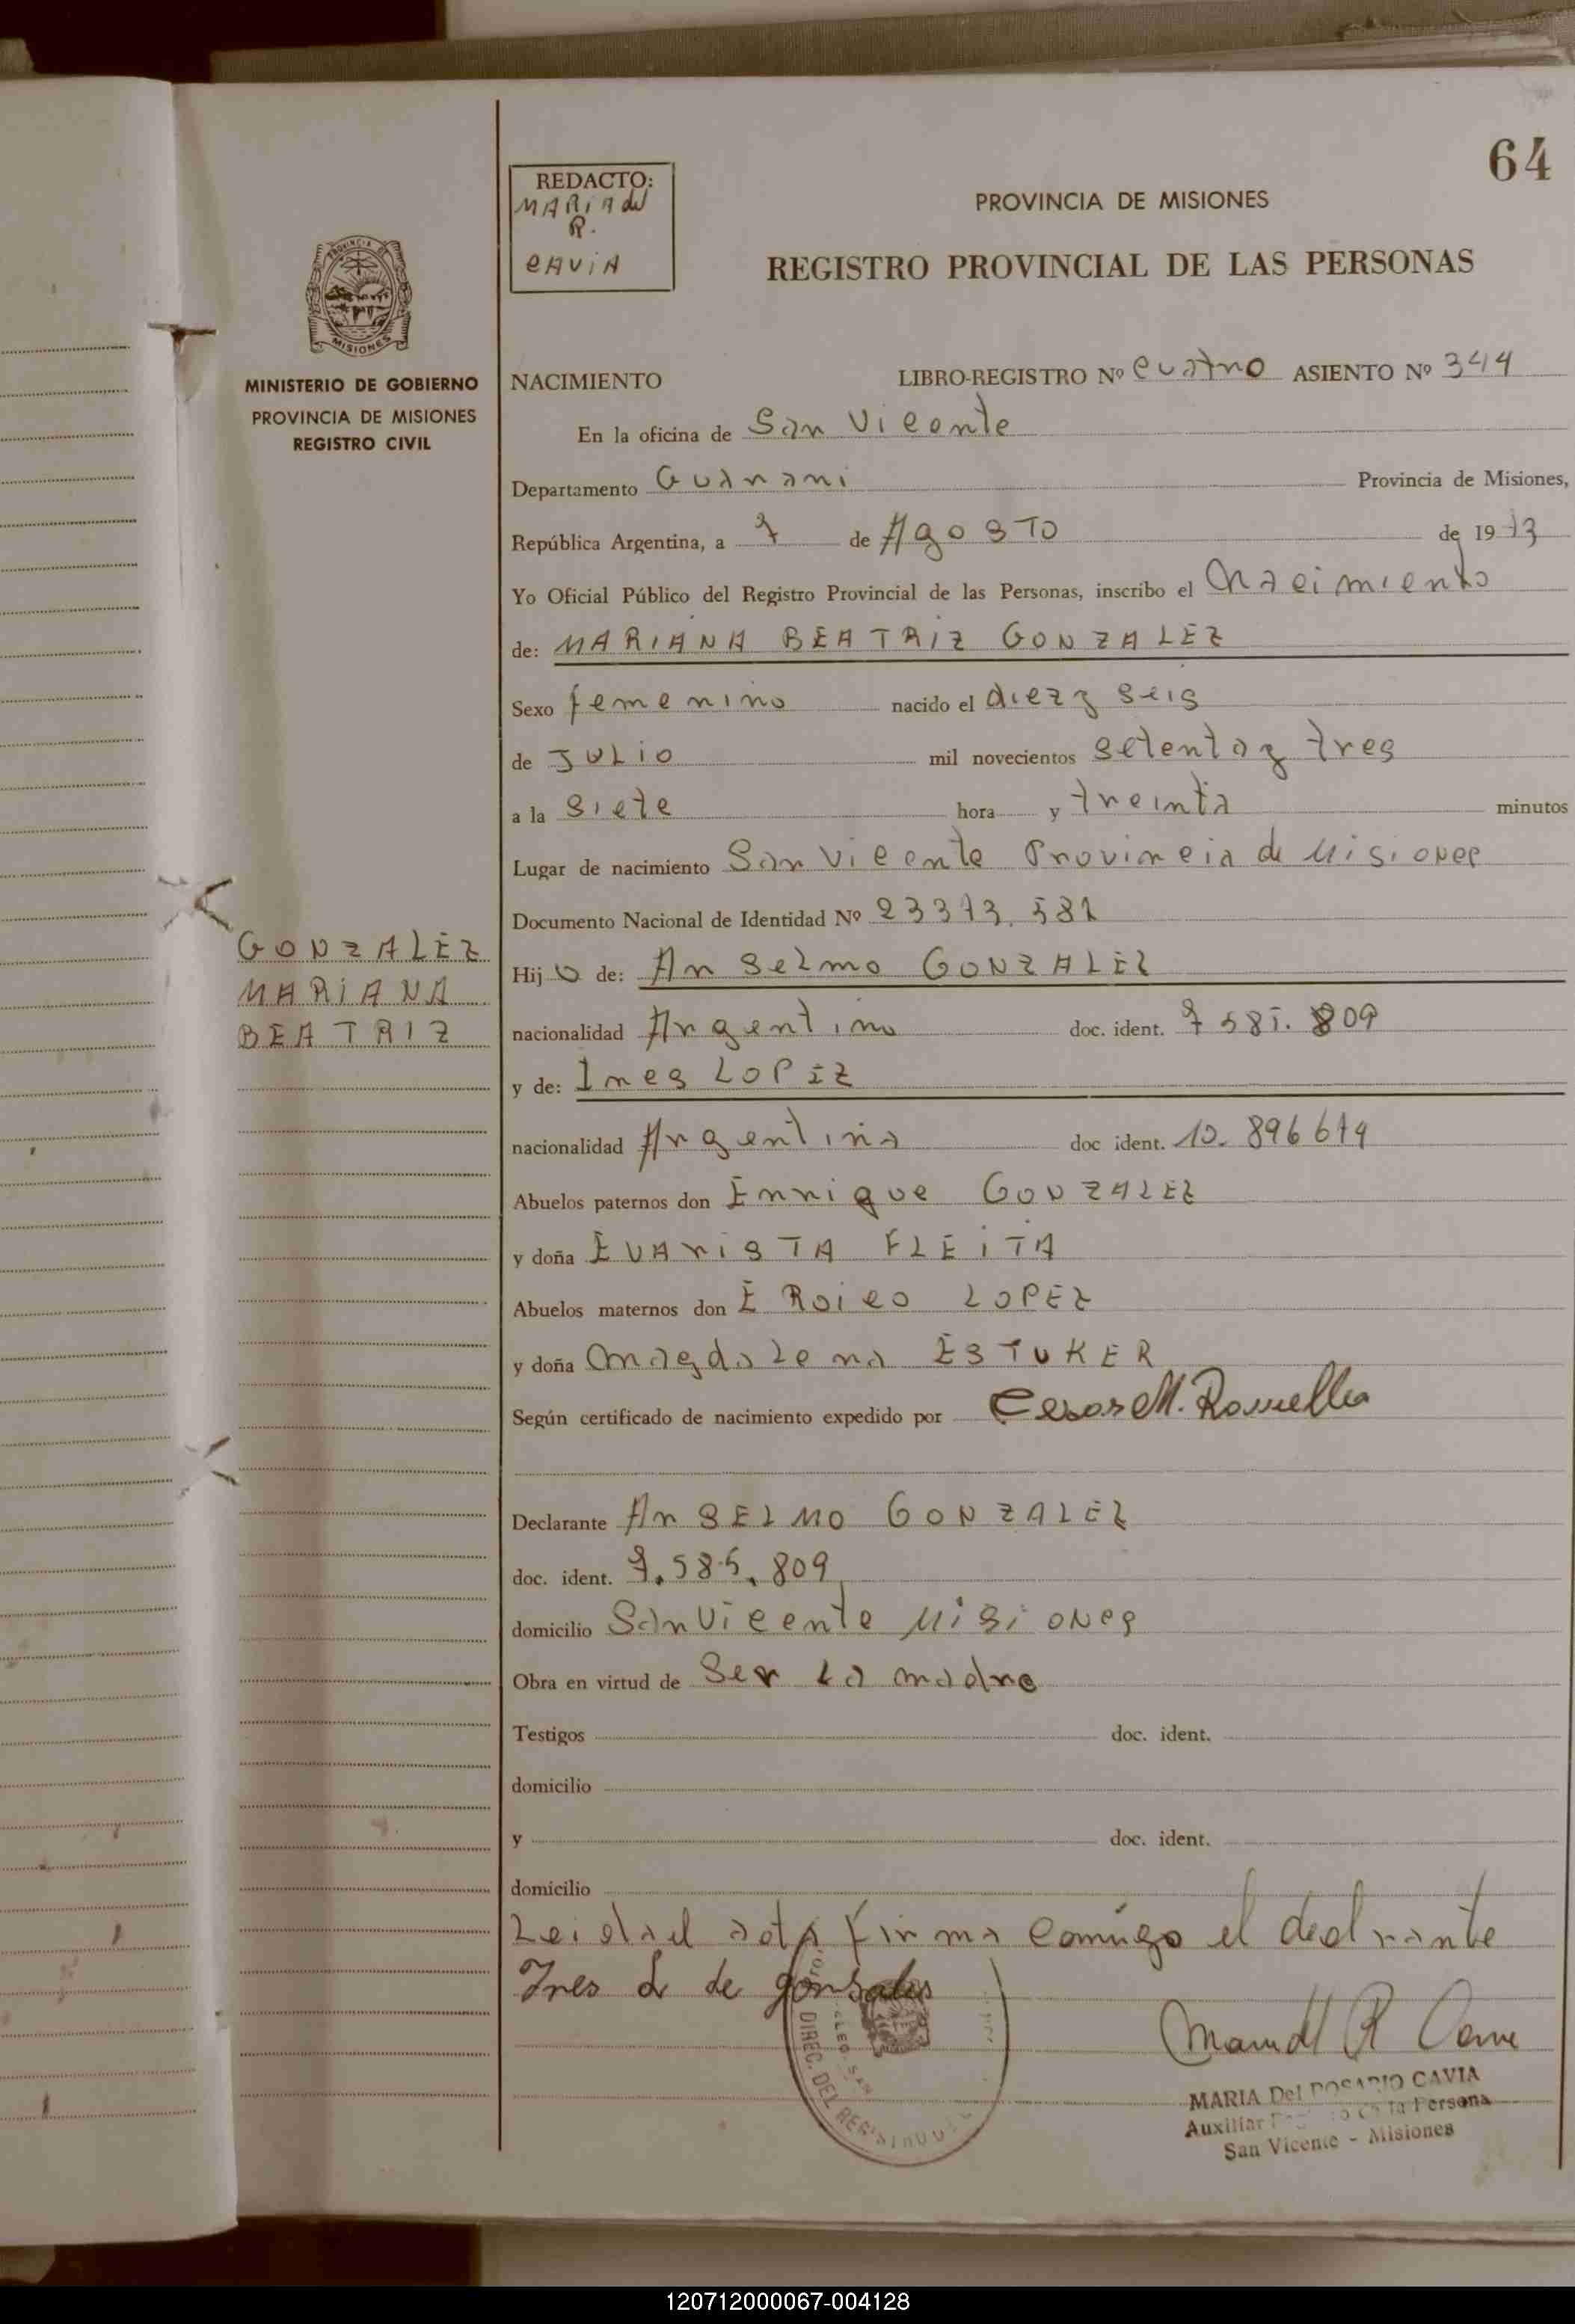 64
REDACTO:
MARIA del
R.
CAVIA
PROVINCIA DE MISIONES
REGISTRO PROVINCIAL DE LAS PERSONAS
PROVINCIA DE
MISIONES
MINISTERIO DE GOBIERNO
PROVINCIA DE MISIONES
REGISTRO CIVIL
NACIMIENTO LIBRO-REGISTRO Nº cuatro ASIENTO Nº 344
En la oficina de San Vicente
Departamento Guarani Provincia de Misiones,
República Argentina, a 7 de Agosto de 1973
Yo Oficial Público del Registro Provincial de las Personas, inscribo el Nacimiento
de: MARIANA BEATRIZ GONZALEZ
Sexo femenino nacido el diez y seis
de JULIO mil novecientos setenta y tres
a la siete hora y treinta minutos
Lugar de nacimiento San Vicente Provincia de Misiones
Documento Nacional de Identidad Nº 23373.581
GONZALEZ
MARIANA
BEATRIZ
Hijo de: Anselmo GONZALEZ
nacionalidad Argentino doc. ident. 7585.809
y de: Ines LOPEZ
nacionalidad Argentina doc ident. 10.896674
Abuelos paternos don Enrique GONZALEZ
y doña EVARISTA FLEITA
Abuelos maternos don EROICO LOPEZ
y doña Magdalena ESTUKER
Según certificado de nacimiento expedido por Cesar M.
Declarante AnSELMO GONZALEZ
doc. ident. 7.585.809
domicilio San Vicente Misiones
Obra en virtud de Ser La madre
Testigos doc. ident.
domicilio
y doc. ident.
domicilio
Leida el acta firma comigo el declarante
Ines L de gonsales
DIREC. DEL
MARIA Del ROSARIO CAVIA
Auxiliar la Persona
San Vicente - Misiones
120712000067-004128